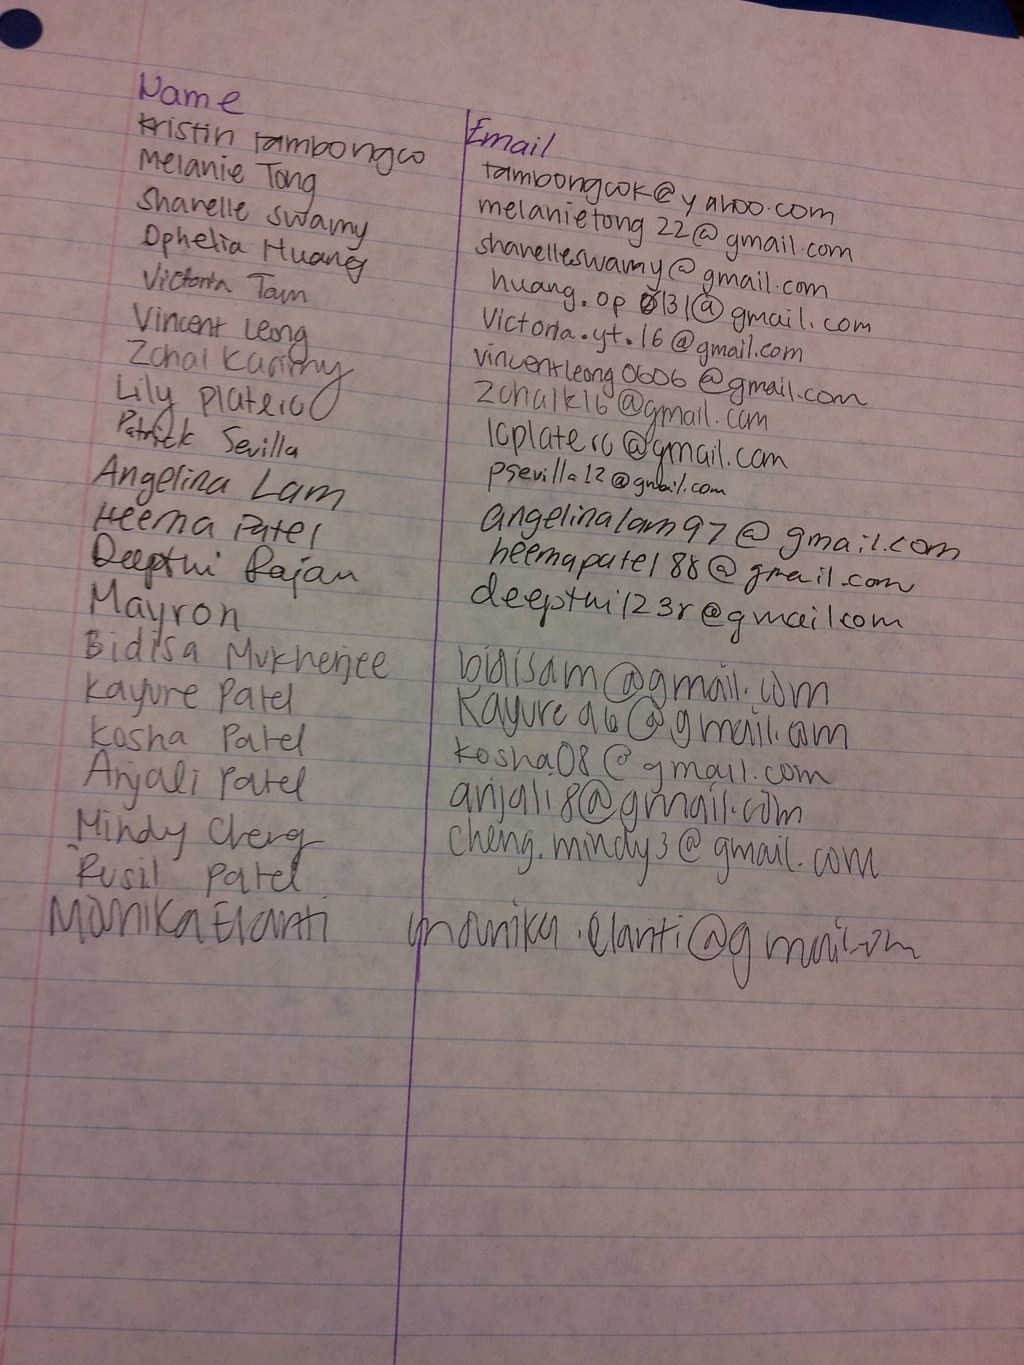 Name Email
Kristin Tambongco tambongcok@yahoo.com
Melanie Tong melanietong22@gmail.com
Shanelle Swamy shanelleswamy@gmail.com
Ophelia Huang huang.op0131@gmail.com
Victoria Tam victoria.yt.16@gmail.com
Vincent Leong vincentleong0606@gmail.com
Zohal Karimy zohalk16@gmail.com
Lily Platero lcplatero@gmail.com
Patrick Sevilla psevilla12@gmail.com
Angelina Lam angelinalam97@gmail.com
Heema Patel heemapatel88@gmail.com
Deepthi Rajan deepthi123r@gmail.com
Mayron
Bidisa Mukherjee bidisam@gmail.com
Kayure Patel Kayure96@gmail.com
Kosha Patel kosha08@gmail.com
Anjali Patel anjali8@gmail.com
Mindy Cheng cheng.mindy3@gmail.com
Rusil Patel
Monika Elanti monika.elanti@gmail.com